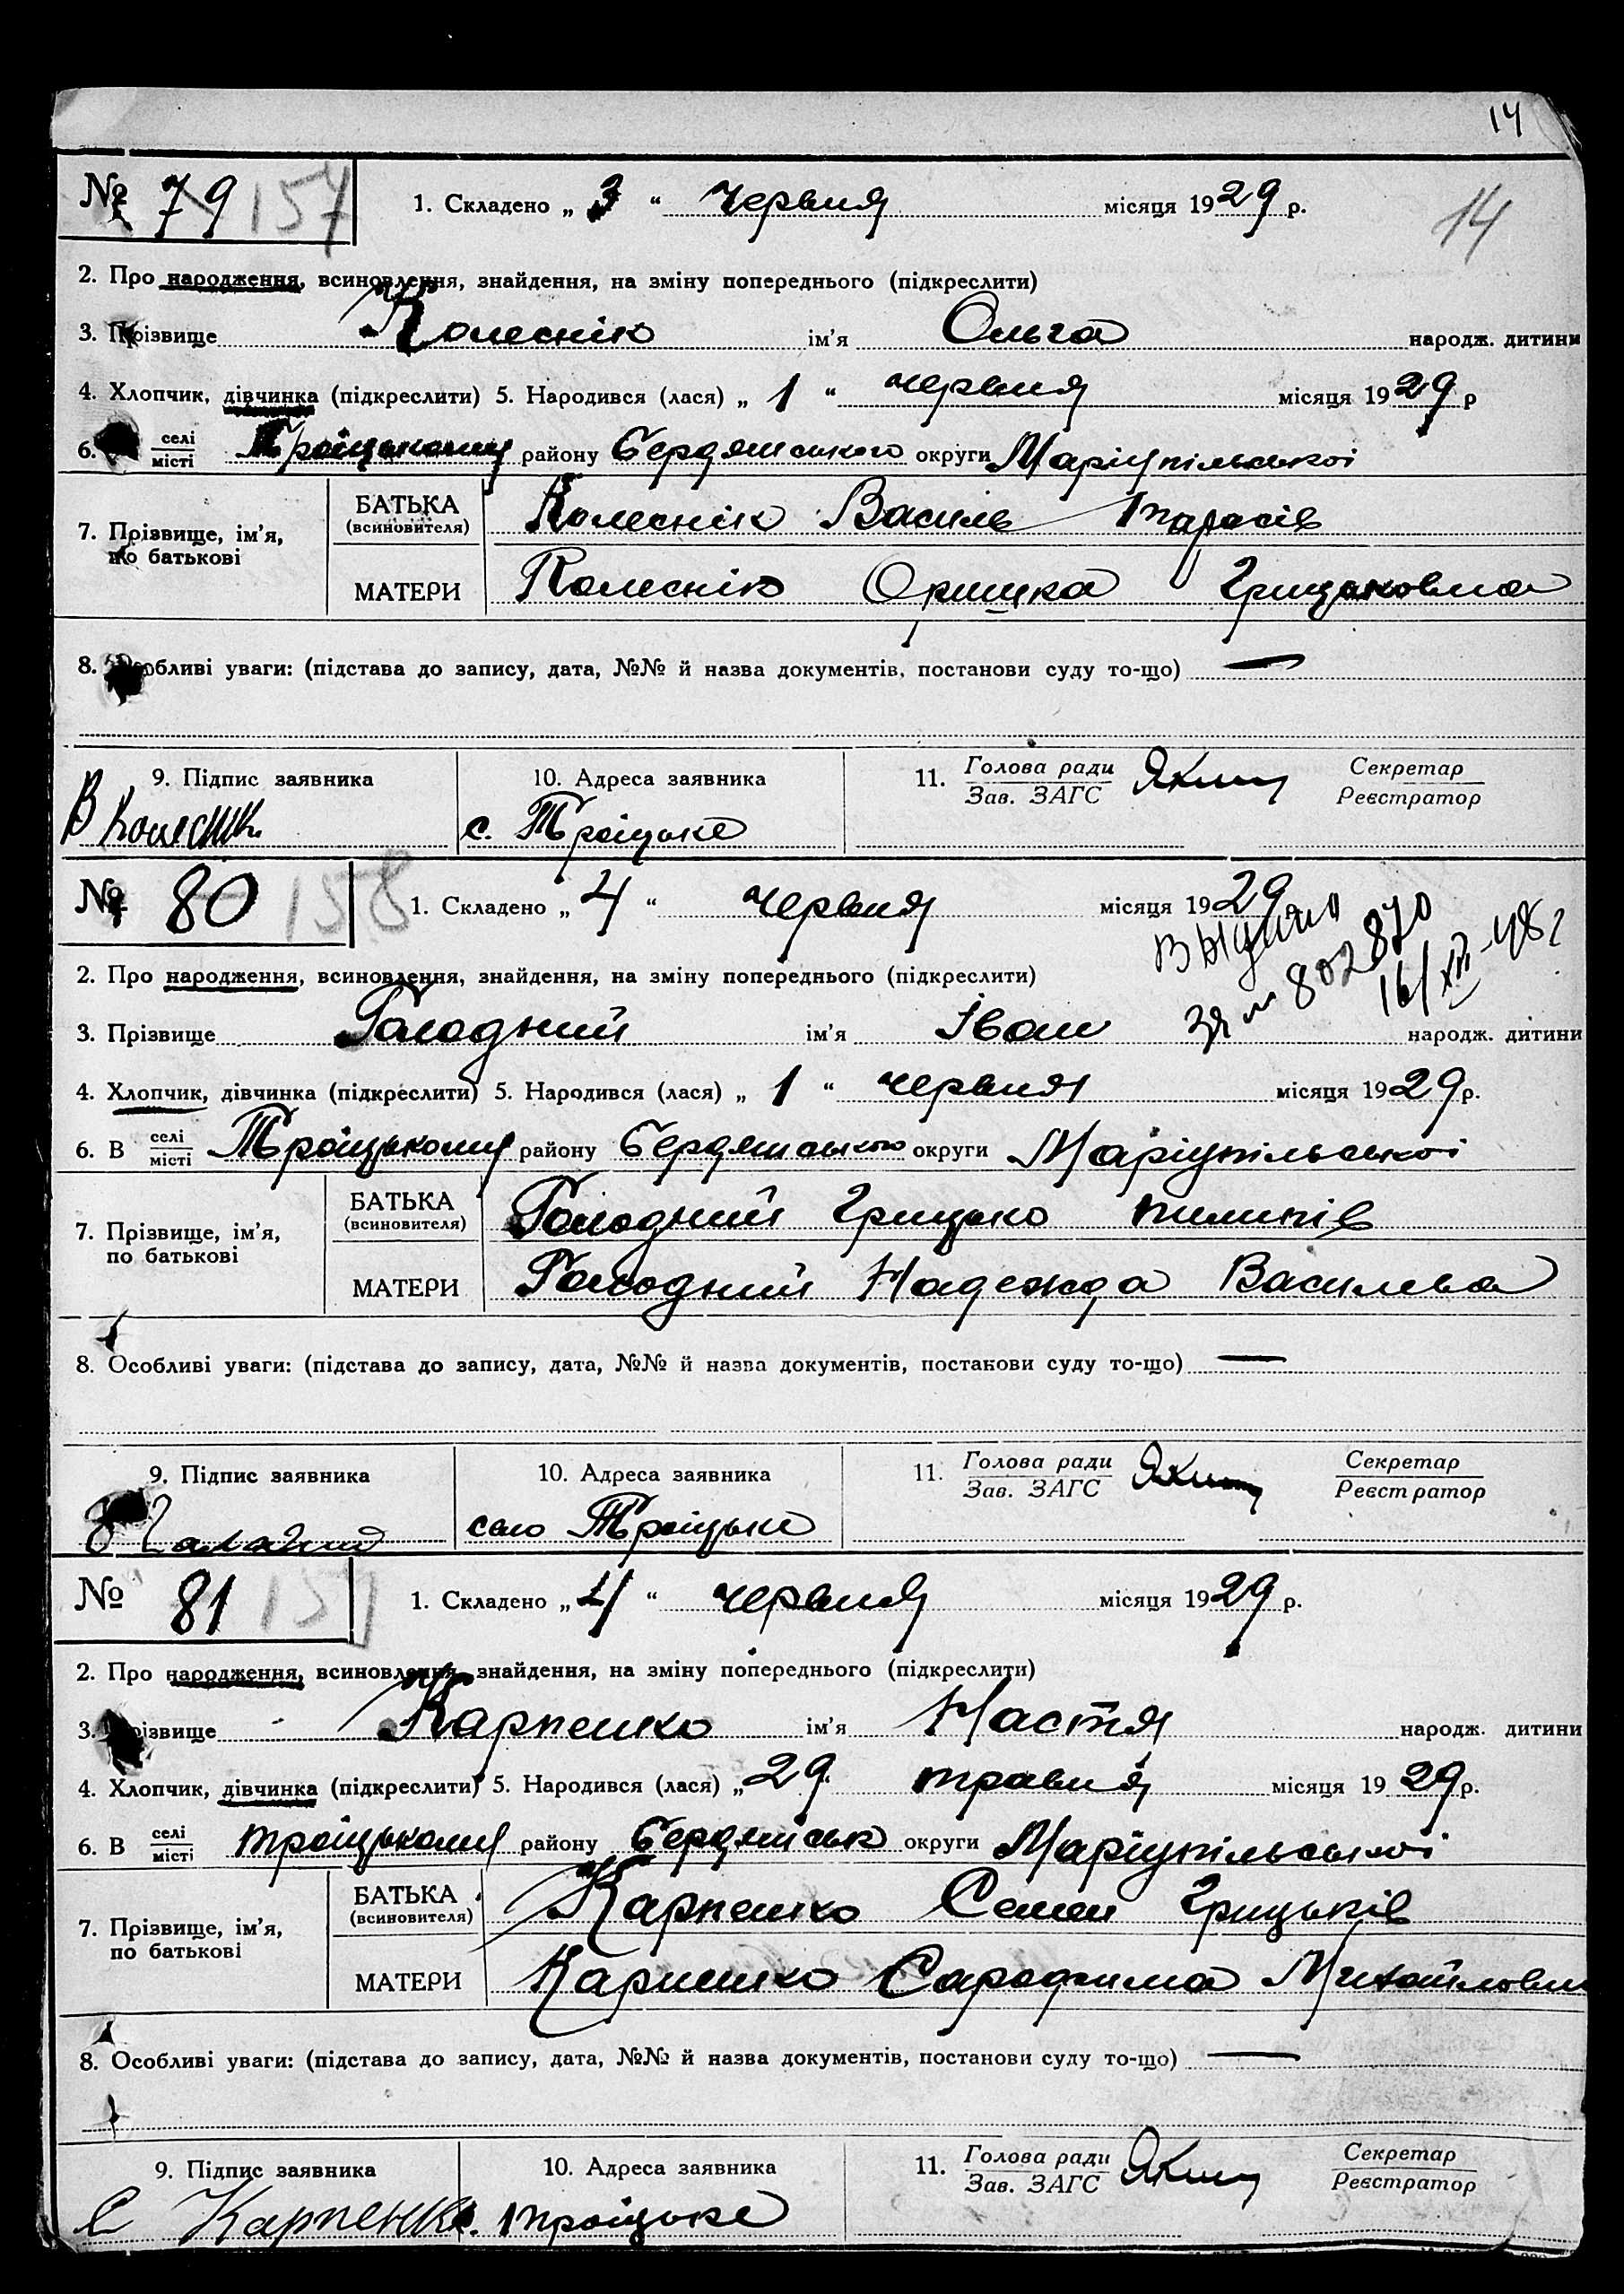 14
№ 79 157 1. Складено „ 3 “ червня місяця 1929 р.
14
2. Про народження, всиновлення, знайдення, на зміну попереднього (підкреслити)
3. Прізвище Колеснік ім'я Ольга народж. дитини
4. Хлопчик, дівчинка (підкреслити) 5. Народився (лася) „ 1 “ червня місяця 1929 р
6. селі місті Троіцькому району Бердянського округи Маріупільськоі
7. Прізвище, ім'я, по батькові
БАТЬКА (всиновителя) Колеснік Василь Тарасів
МАТЕРИ Колеснік Оришка Грицьковна
8. Особливі уваги: (підстава до запису, дата, №№ й назва документів, постанови суду то-що) —
9. Підпис заявника 10. Адреса заявника 11. Голова ради Зав. ЗАГС Секретар Реєстратор
В Колесник с. Троіцьке
№ 80 158 1. Складено „ 4 “ червня місяця 1929
802870
16/XII-48 г
2. Про народження, всиновлення, знайдення, на зміну попереднього (підкреслити)
3. Прізвище Голодний ім'я Іван народж. дитини
4. Хлопчик, дівчинка (підкреслити) 5. Народився (лася) „ 1 “ червня місяця 1929 р.
6. В селі місті Троіцькому району Бердянського округи Маріупільськоі
7. Прізвище, ім'я, по батькові
БАТЬКА (всиновителя) Голодний Грицько Пилипів
МАТЕРИ Голодний Надежда Васильва
8. Особливі уваги: (підстава до запису, дата, №№ й назва документів, постанови суду то-що) —
9. Підпис заявника 10. Адреса заявника 11. Голова ради Зав. ЗАГС Секретар Реєстратор
село Троіцьке
№ 81 159 1. Складено „ 4 “ червня місяця 1929 р.
2. Про народження, всиновлення, знайдення, на зміну попереднього (підкреслити)
3. Прізвище Карпенко ім'я Настя народж. дитини
4. Хлопчик, дівчинка (підкреслити) 5. Народився (лася) „ 29 “ травня місяця 1929 р.
6. В селі місті Троіцькому району Бердянськ округи Маріупільськоі
7. Прізвище, ім'я, по батькові
БАТЬКА (всиновителя) Карпенко Семен Грицьків
МАТЕРИ Карпенко Михайловн
8. Особливі уваги: (підстава до запису, дата, №№ й назва документів, постанови суду то-що) —
9. Підпис заявника 10. Адреса заявника 11. Голова ради Зав. ЗАГС Секретар Реєстратор
С Карпенко с. Троіцьке